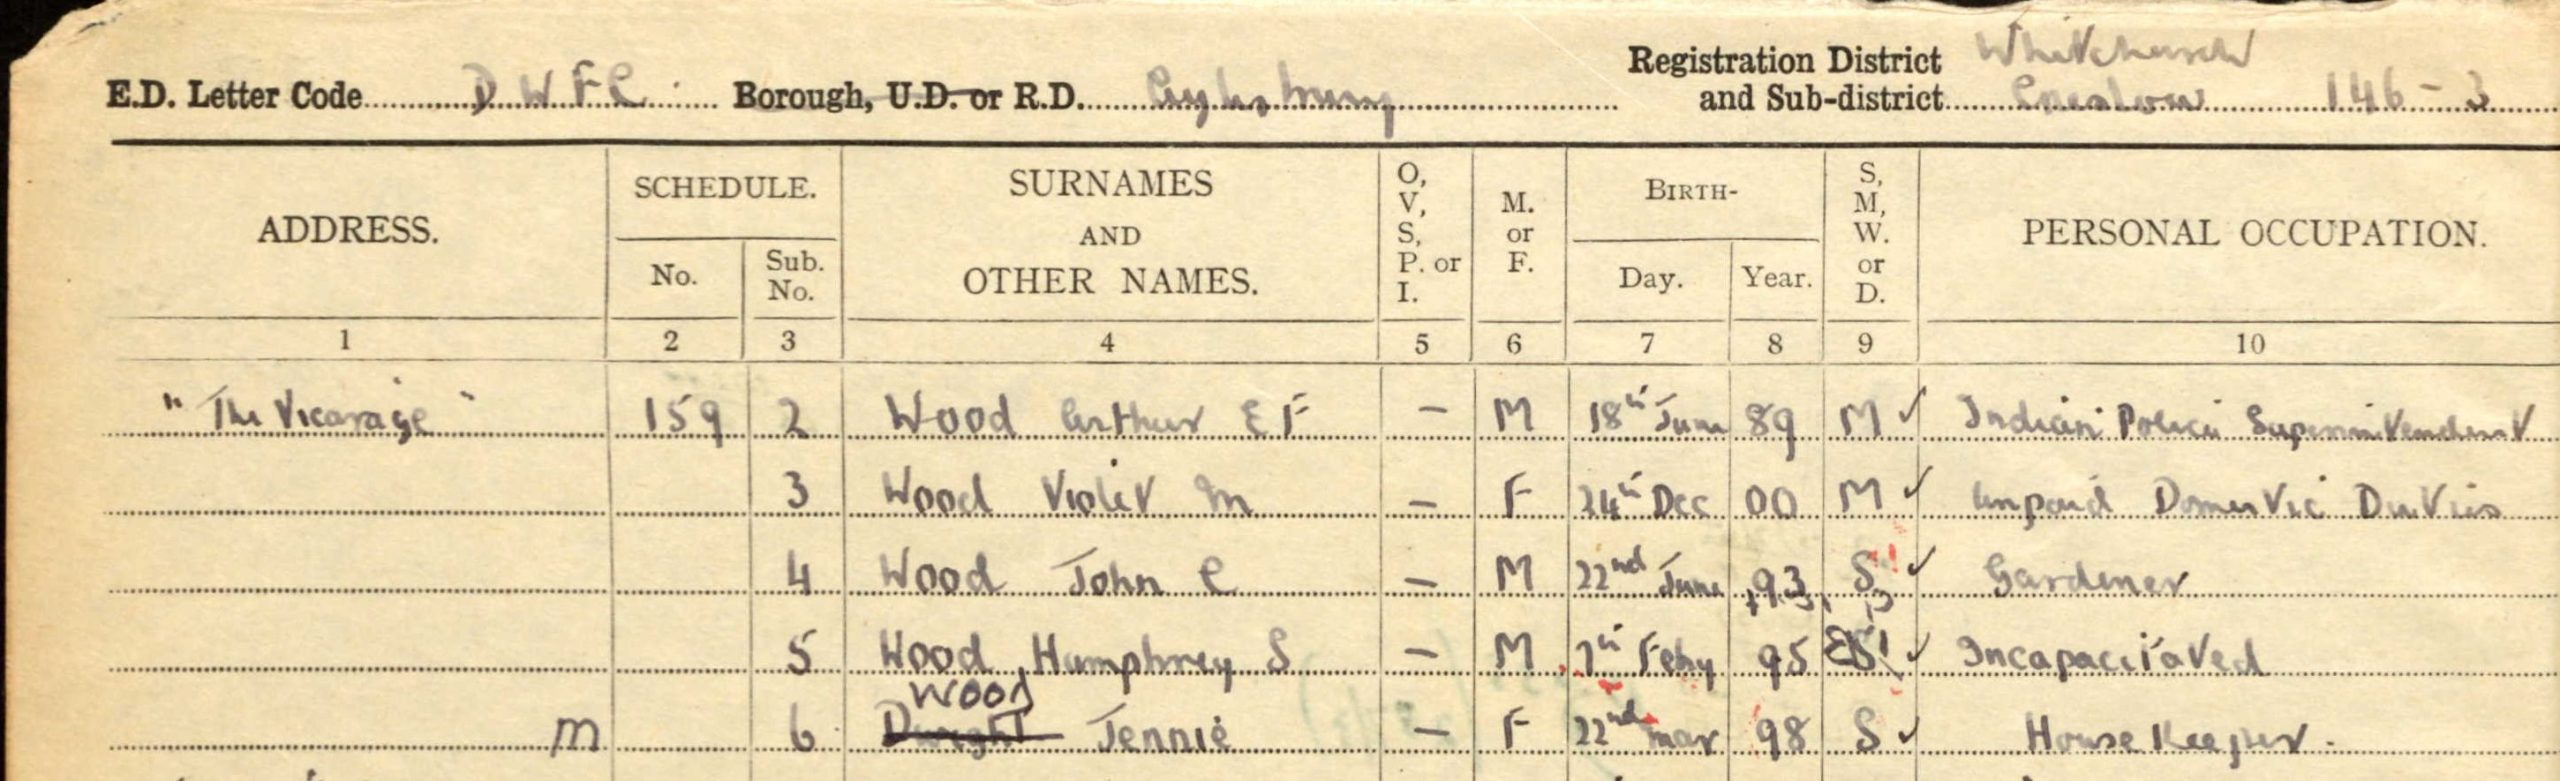 E.D. Letter Code D W F C Borough, U.D. or R.D. Aylesbury Registration District Whitchurch
and Sub-district Linslow 146-3
ADDRESS. SCHEDULE. No. Sub. No. SURNAMES AND OTHER NAMES. O, V, S, P. or I. M. or F. BIRTH- Day. Year. S, M, W. or D. PERSONAL OCCUPATION.
1 2 3 4 5 6 7 8 9 10
"The Vicarage" 159 2 Wood Arthur E F – M 18th June 89 M ✓ Indian Police Superintendent
3 Wood Violet M – F 24th Dec 00 M ✓ Unpaid Domestic Duties
4 Wood John C – M 22nd June 93 S ✓ Gardener
5 Wood Humphrey S – M 7th Feby 95 S ✓ Incapacitated
Wood
m 6 Dwight Jennie – F 22nd Mar 98 S ✓ House Keeper.